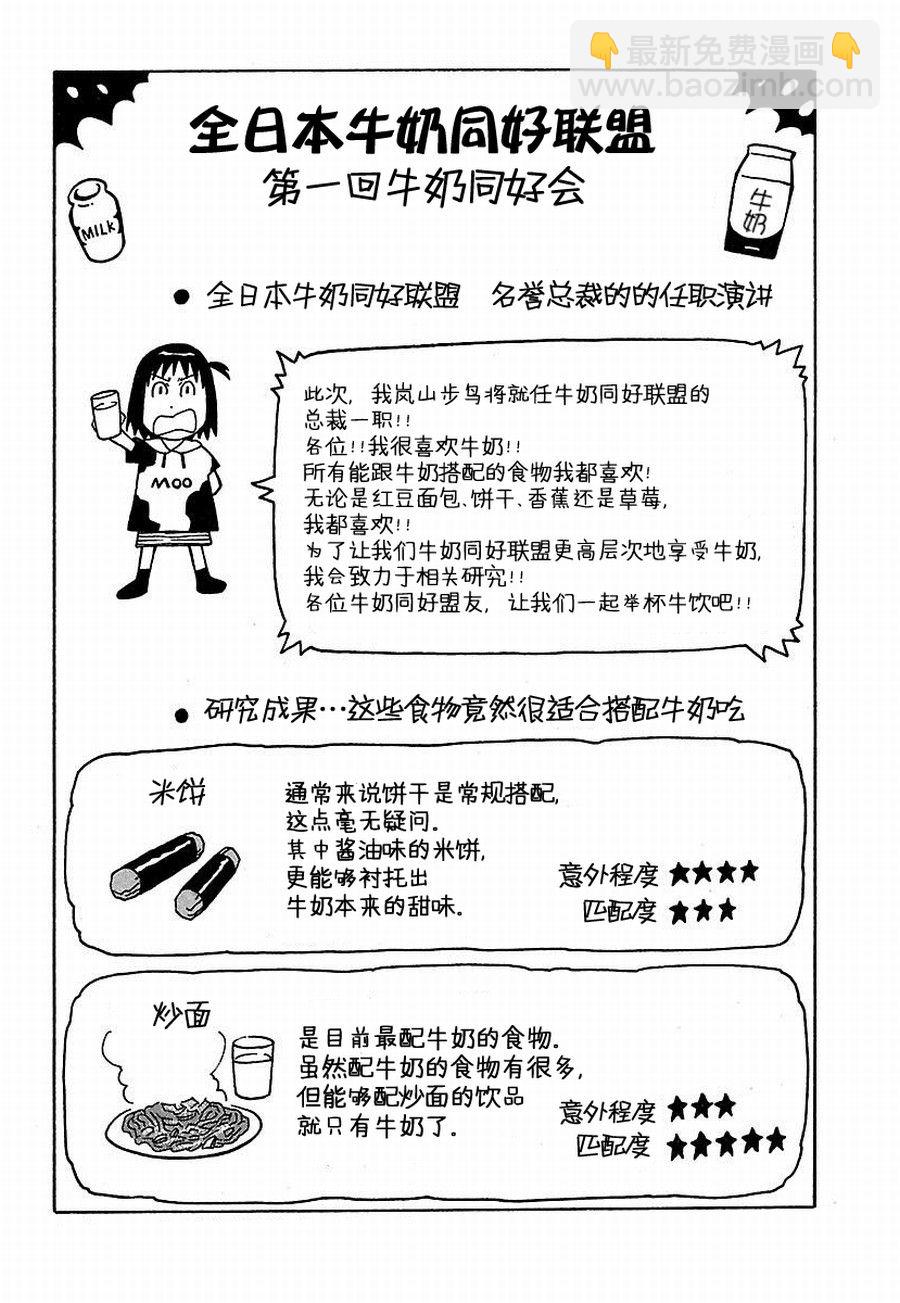 👇最新免费漫画👇
www.baozimh.com
全日本牛奶同好联盟
第一回牛奶同好会
MILK
牛奶
● 全日本牛奶同好联盟 名誉总裁的的任职演讲
此次, 我岚山步鸟将就任牛奶同好联盟的
总裁一职!!
各位!!我很喜欢牛奶!!
所有能跟牛奶搭配的食物我都喜欢!
无论是红豆面包、饼干、香蕉还是草莓,
我都喜欢!!
为了让我们牛奶同好联盟更高层次地享受牛奶,
我会致力于相关研究!!
各位牛奶同好盟友, 让我们一起举杯牛饮吧!!
MOO
● 研究成果…这些食物竟然很适合搭配牛奶吃
米饼
通常来说饼干是常规搭配,
这点毫无疑问。
其中酱油味的米饼,
更能够衬托出
牛奶本来的甜味。
意外程度 ★★★★
匹配度 ★★★
炒面
是目前最配牛奶的食物。
虽然配牛奶的食物有很多,
但能够配炒面的饮品
就只有牛奶了。
意外程度 ★★★
匹配度 ★★★★★